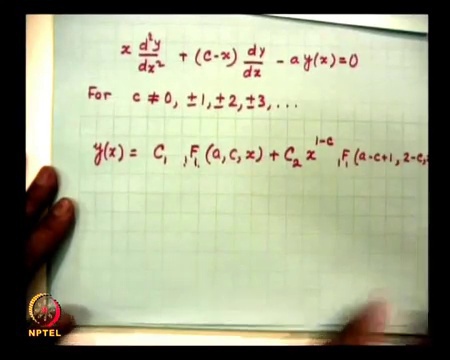 x d²y/dx² + (c-x) dy/dx - a y(x) = 0
For c ≠ 0, ±1, ±2, ±3, ...
y(x) = C₁ ₁F₁(a, c, x) + C₂ x^(1-c) ₁F₁(a-c+1, 2-c,
NPTEL